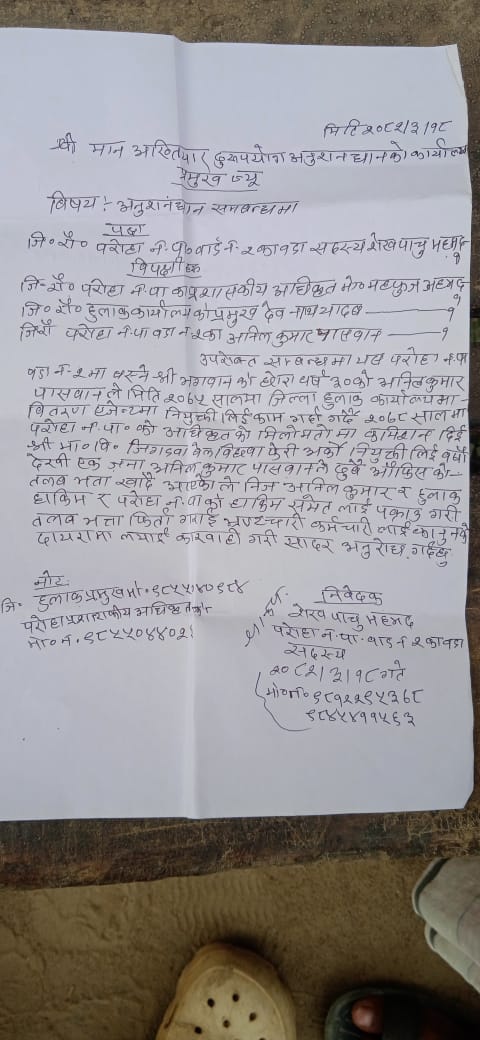 मिति २०८२/३/१८
श्री मान अख्तियार दुरुपयोग अनुशनधानको कार्यालय
प्रमुख ज्यू
विषय :- अनुशनधान सम्बन्धमा
पक्ष
जि० रौ० परोहा न० पा० वार्ड न० २ का वडा सदस्य शेख पाचु महमद १
विपक्षी
जि० रौ० परोहा न. पा का प्रशासकीय अधिकृत मो० महफुज अहमद १
जि० रौ० हुलाक कार्यालय का प्रमुख देव नाथ यादव १
जि रौ परोहा न. पा वडा न २ का अनिल कुमार पासवान १
उपरोक्त सम्बन्धमा यस परोहा न. पा
वडा न. २ मा बस्ने श्री भगवान को छोरा वर्ष ३० को अनिल कुमार
पासवान ले मिति २०६५ सालमा जिल्ला हुलाक कार्यालयमा
वितरण एजेन्टमा नियुक्ती लिई काम गर्दा गर्दै २०७८ सालमा
परोहा न. पा. को अधिकृत को मिलोमतो मा दिई
श्री मा० वि० फेरी अर्को नियुक्ती लिई वर्षौ
देखी एक जना अनिल कुमार पासवानले दुवै अफिस को
तलब भता खादै आएकाले निज अनिल कुमार र हुलाक
हाकिम र परोहा न. पा को हाकिम समेत लाई पकाउ गरी
तलब भत्ता फिर्ता गराई भ्रष्टचारी कर्मचारी लाई कानुनको
दायरामा ल्याई कारवाही गरी सादर अनुरोध गर्दछु
नोट
जि० हुलाक प्रमुख मो. ९८५५०४०९८४
परोहा प्रशासकीय अधिकृत को
मो० न. ९८५५०४४०२९
निवेदक
शेख पाचु महमद
परोहा न. पा. वार्ड न २ का वडा
सदस्य
२०८२/३/१८ गते
मो० न० ९८१२२९५३६८
९८४५४११५६३